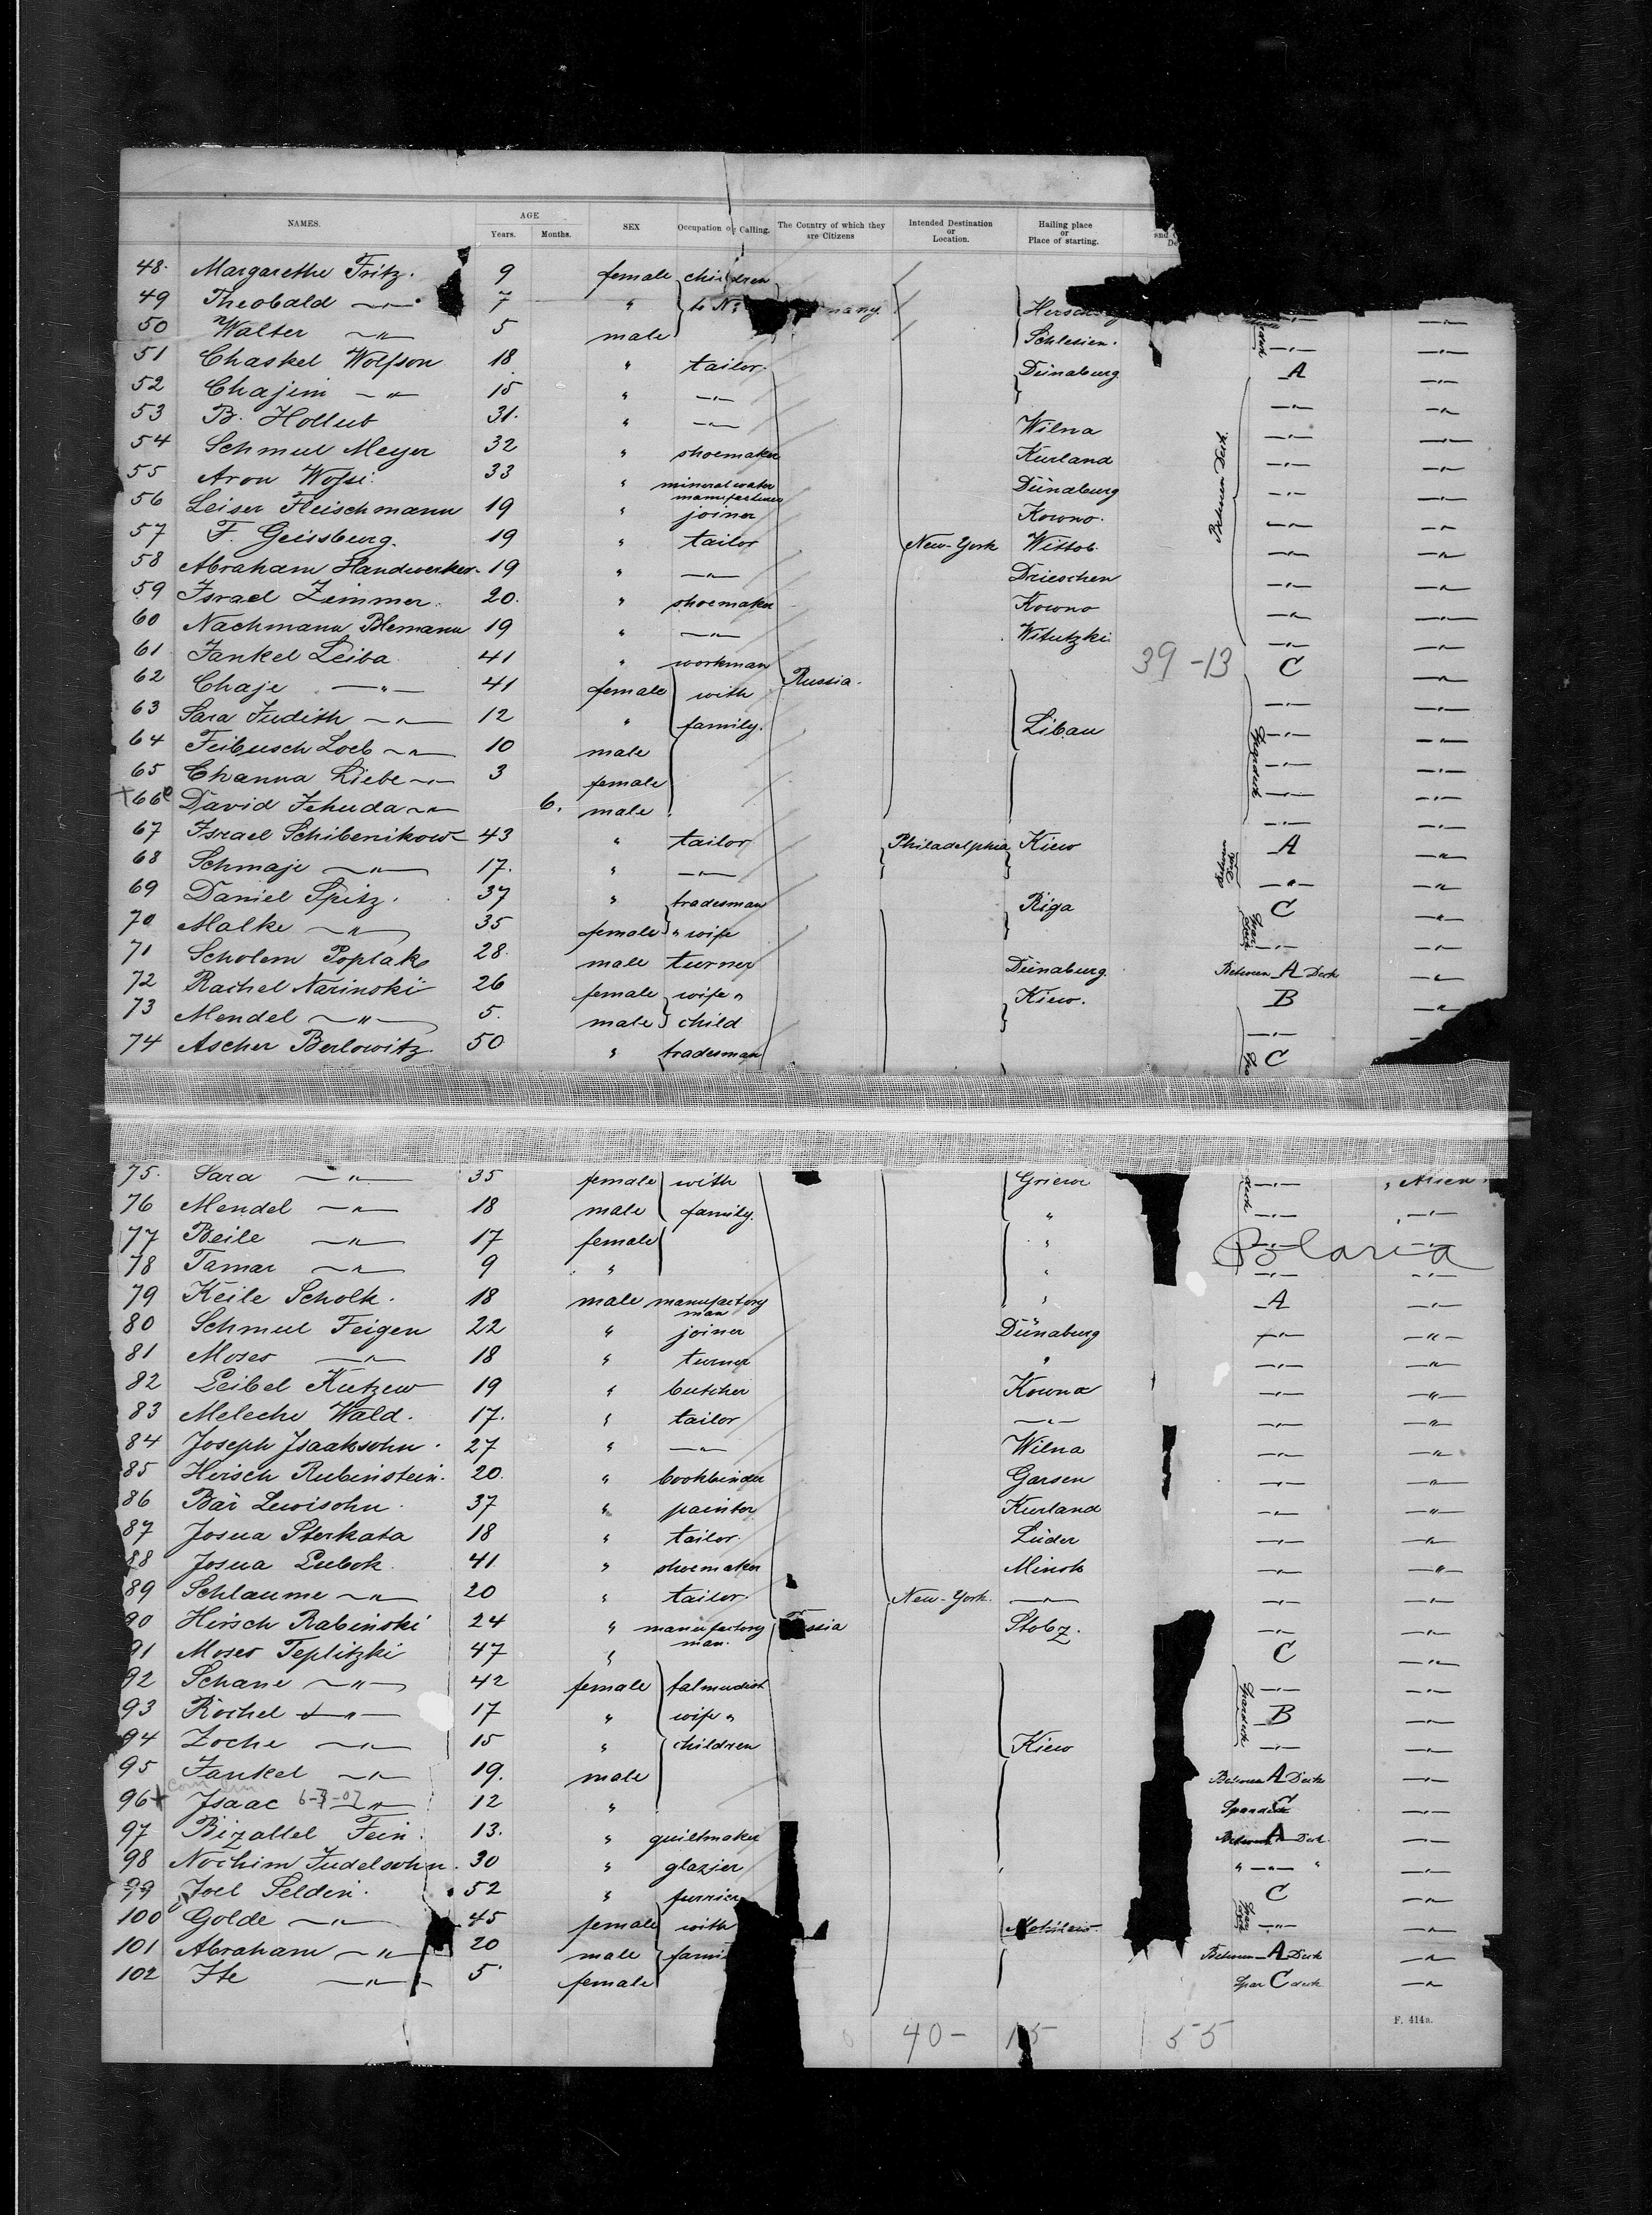 NAMES. AGE Years. Months. SEX Occupation or Calling. The Country of which they are Citizens Intended Destination or Location. Hailing place or Place of starting.
48. Margarethe Fritz. 9 female children
49 Theobald —〃— 7 〃 to
50 Walter —〃— 5 male Schlesien.
51 Chaskel Wolfson 18. 〃 tailor. Dünaburg A
52 Chajim —〃— 15 〃 —〃— —〃— —〃—
53 B. Hollub 31. 〃 —〃— Wilna —〃— —〃—
54 Schmul Meyer 32 〃 shoemaker Kurland —〃— —〃—
55 Aron 33 〃 mineral water manufacturer Dünaburg —〃— —〃—
56 Leiser Fleischmann 19 〃 joiner Kowno. —〃— —〃—
57 F. Geissburg. 19 〃 tailor New-York Wittob. —〃— —〃—
58 Abraham Handwerker 19 〃 —〃— Drieschen —〃— —〃—
59 Israel Zimmer. 20. 〃 shoemaker Kowno —〃— —〃—
60 Nachmann Blemann 19 〃 —〃— Witutzki —〃— —〃—
61. Jankel Leiba 41 〃 workman 39-13 C —〃—
62 Chaje —〃— 41 female with Russia. —〃— —〃—
63 Sara Judith —〃— 12 〃 family. Libau —〃— —〃—
64 Feibusch Loeb —〃— 10 male —〃— —〃—
65 Channa Liebe —〃— 3 female —〃— —〃—
66 David Jehuda —〃— 6. male —〃— —〃—
67 Israel Schibenikow 43 〃 tailor Philadelphia Kiew A —〃—
68 Schmaje —〃— 17. 〃 —〃— —〃— —〃—
69 Daniel Spitz. 37 〃 tradesman Riga C —〃—
70 Malke —〃— 35 female 〃 wife —〃— —〃—
71 Scholem Poplak 28. male turner Dünaburg Between A Deck —〃—
72 Rachel Narinski 26 female wife 〃 Kiew. B —〃—
73 Mendel —〃— 5. male child —〃—
74 Ascher Berlowitz 50 〃 tradesman C
75. Sara —〃— 35 female with Griewe —〃—
76 Mendel —〃— 18 male family. 〃 —〃— —〃—
77 Beile —〃— 17 female 〃 —〃— —〃—
78 Tamar —〃— 9 〃 〃 —〃— —〃—
79 Keile Scholk. 18 male manufactory man 〃 A —〃—
80 Schmul Feigen 22 〃 joiner Dünaburg —〃— —〃—
81 Moses —〃— 18 〃 turner 〃 —〃— —〃—
82 Leibel Kutzew 19 〃 butcher Kowna —〃— —〃—
83 Meleche Wald. 17. 〃 tailor —〃— —〃— —〃—
84 Joseph Isaaksohn. 27 〃 —〃— Wilna —〃— —〃—
85 Hirsch Rubinstein. 20. 〃 bookbinder Garsen —〃— —〃—
86 Bär Lewisohn. 37 〃 painter Kurland —〃— —〃—
87 Josua Sterkata 18 〃 tailor. Lüder —〃— —〃—
88 Josua Lubok 41 〃 shoemaker Minsk —〃— —〃—
89 Schlaume —〃— 20 〃 tailor. New-York. —〃— —〃— —〃—
90 Hirsch Rabinski 24 〃 manufactory man. Stobz. —〃— —〃—
91 Moses Teplitzki 47 〃 C —〃—
92 Schane —〃— 42 female talmudist —〃— —〃—
93 Rochel —〃— 17 〃 wife 〃 B —〃—
94 Zoche —〃— 15 〃 children Kiew —〃— —〃—
95 Jankel —〃— 19. male Between A Deck —〃—
96 Isaac —〃— 12 〃 C —〃—
97 Bizallel Fein. 13. 〃 quiltmaker Between A Deck —〃—
98 Nochim Judelsohn. 30 〃 glazier 〃 —〃— 〃 —〃—
99 Joel Seldin. 52 〃 furrier C —〃—
100 Golde —〃— 45 female with —〃— —〃—
101 Abraham —〃— 20 male Between A Deck —〃—
102 Ite —〃— 5 female Spar C deck —〃—
40- 15 55
F. 414a.